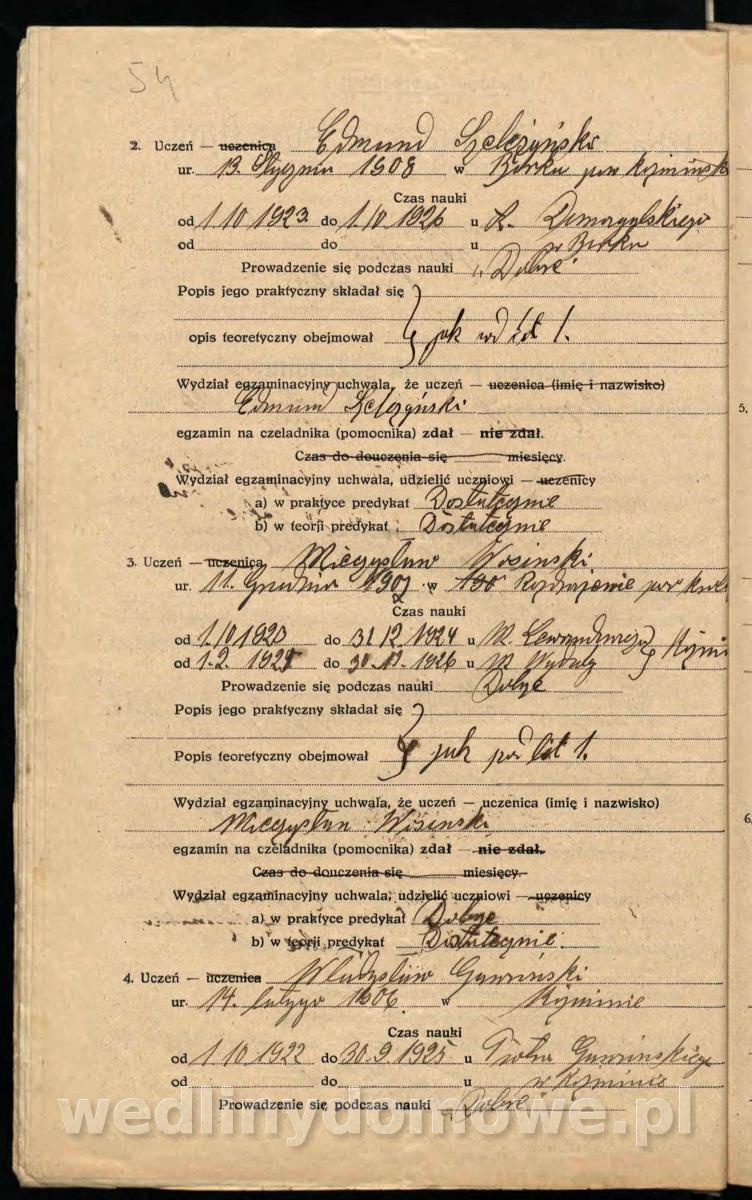 54
2. Uczeń — uczenica Edmund Szelczyński
ur. 13. Stycznia 1908 w Borku pow
Czas nauki
od 1.10.1923. do 1.10.1926 u
od do u w Borku
Prowadzenie się podczas nauki „Dobre"
Popis jego praktyczny składał się
opis teoretyczny obejmował jak 1.
Wydział egzaminacyjny uchwala, że uczeń — uczenica (imię i nazwisko)
Edmund Szelczyński
egzamin na czeladnika (pomocnika) zdał — nie zdał.
Czas do douczenia się miesięcy.
Wydział egzaminacyjny uchwala, udzielić uczniowi — uczenicy
a) w praktyce predykat Dostatecznie
b) w teorji predykat : Dostatecznie
3. Uczeń — uczenica Mieczysław Wosinski
ur. 11. Grudnia w pow
Czas nauki
od 1.10.1920 do 31.12.1924 u
od 1.2. do 1926 u W
Prowadzenie się podczas nauki Dobre
Popis jego praktyczny składał się
Popis teoretyczny obejmował jak pod lit 1.
Wydział egzaminacyjny uchwala, że uczeń — uczenica (imię i nazwisko)
Mieczysław Wosinski
egzamin na czeladnika (pomocnika) zdał — nie zdał.
Czas do douczenia się miesięcy.
Wydział egzaminacyjny uchwala, udzielić uczniowi — uczenicy
a) w praktyce predykat Dobrze
b) w teorji predykat Dostatecznie.
4. Uczeń — uczenica Władysław Gawriński
ur. 14. lutego 1906. w
Czas nauki
od 1.10.1922 do 30.9.1925 u Piotra
od do u w
Prowadzenie się podczas nauki „Dobre"
wedlinydomowe.pl
5.
6.